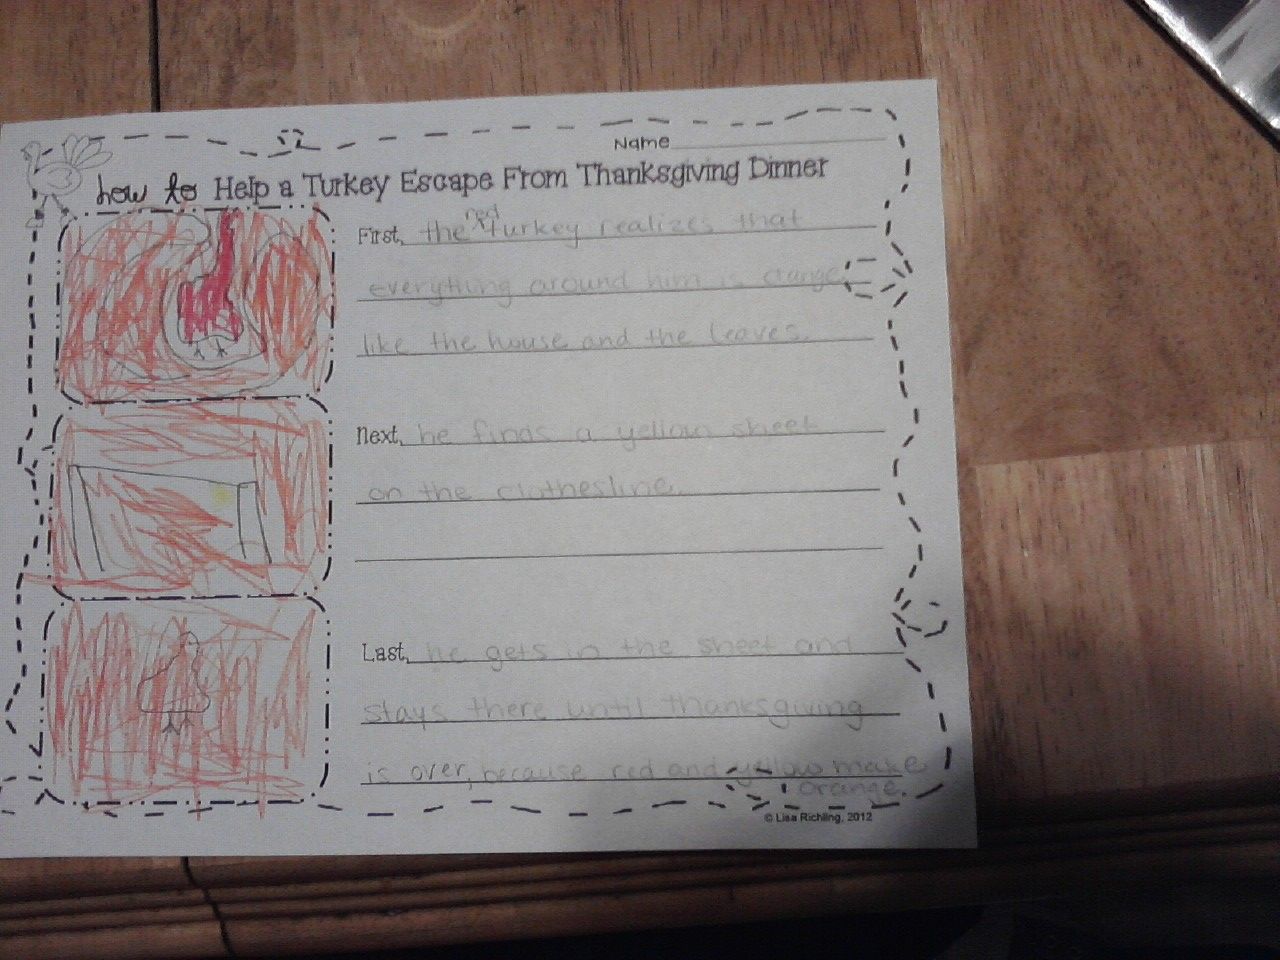 Name
how to Help a Turkey Escape From Thanksgiving Dinner
red
First, the ^ turkey realizes that
everything around him is orange
like the house and the leaves.
Next, he finds a yellow sheet
on the clothesline.
Last, he gets in the sheet and
stays there until thanksgiving
is over, because red and yellow make
orange.
© Lisa Richling, 2012